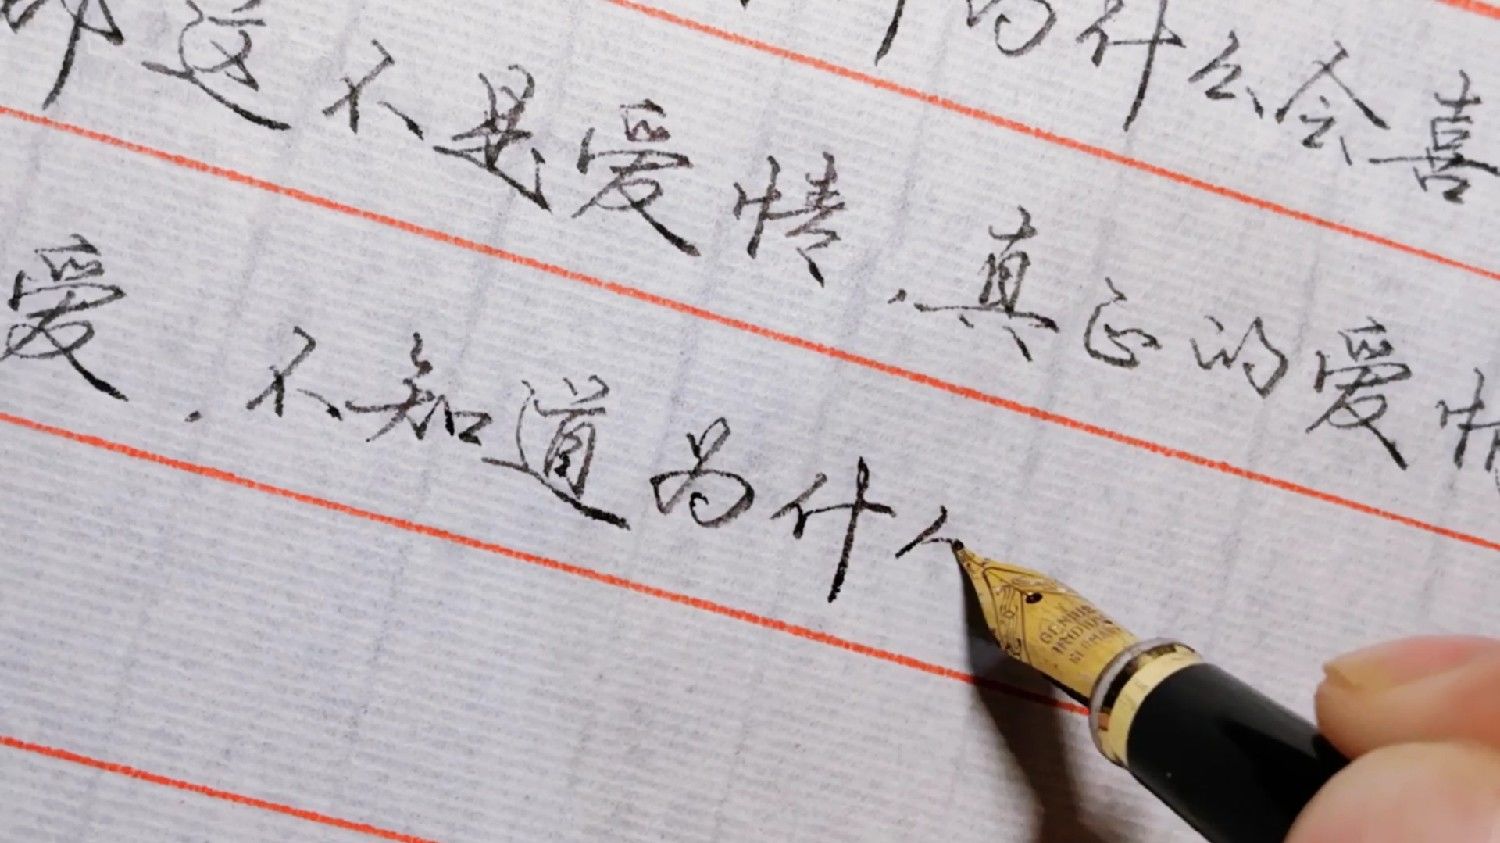 为什么会喜
那这不是爱情,真正的爱情
爱,不知道为什
GENIUS
IRIDIUM
GERMANY